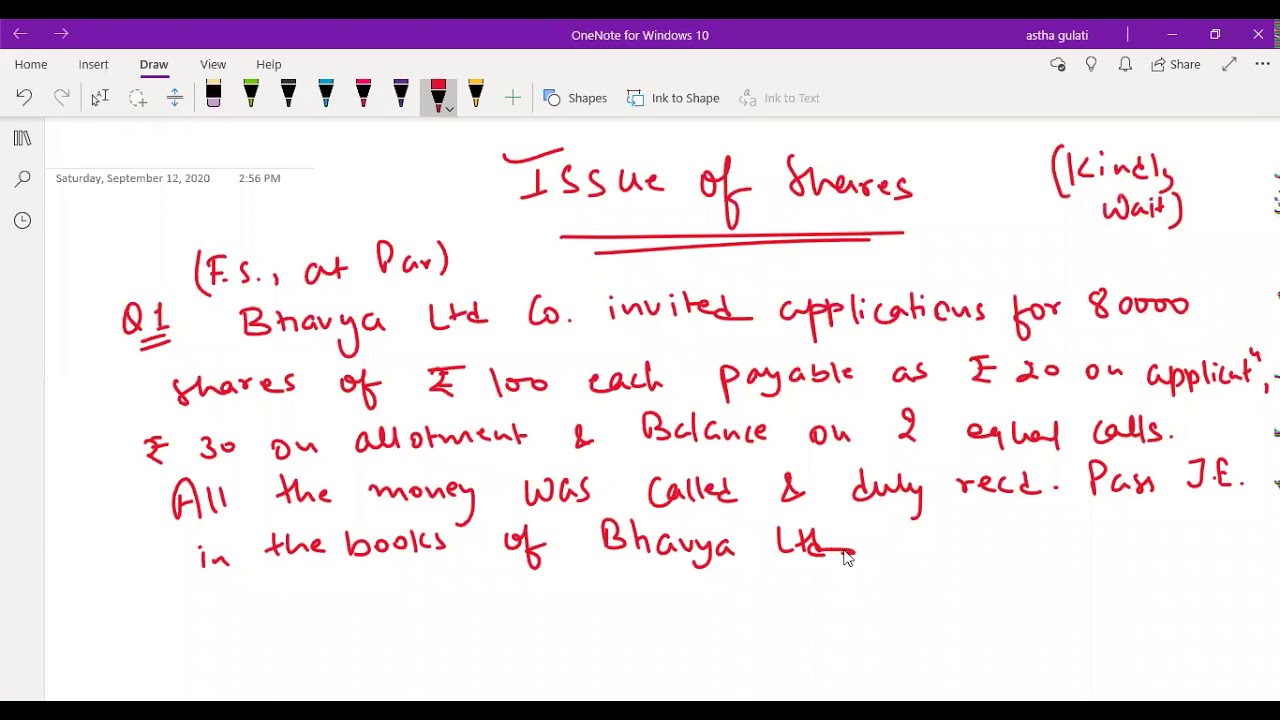 OneNote for Windows 10
astha gulati
Home Insert Draw View Help
Share
Shapes Ink to Shape Ink to Text
Saturday, September 12, 2020 2:56 PM
Issue of Shares
(Kindly
Wait)
(F.S., at Par)
Q1 Bhavya Ltd Co. invited applications for 80000
shares of ₹ 100 each payable as ₹ 20 on applicatn,
₹ 30 on allotment & Balance on 2 equal calls.
All the money was called & duly recd. Pass J.E.
in the books of Bhavya Ltd